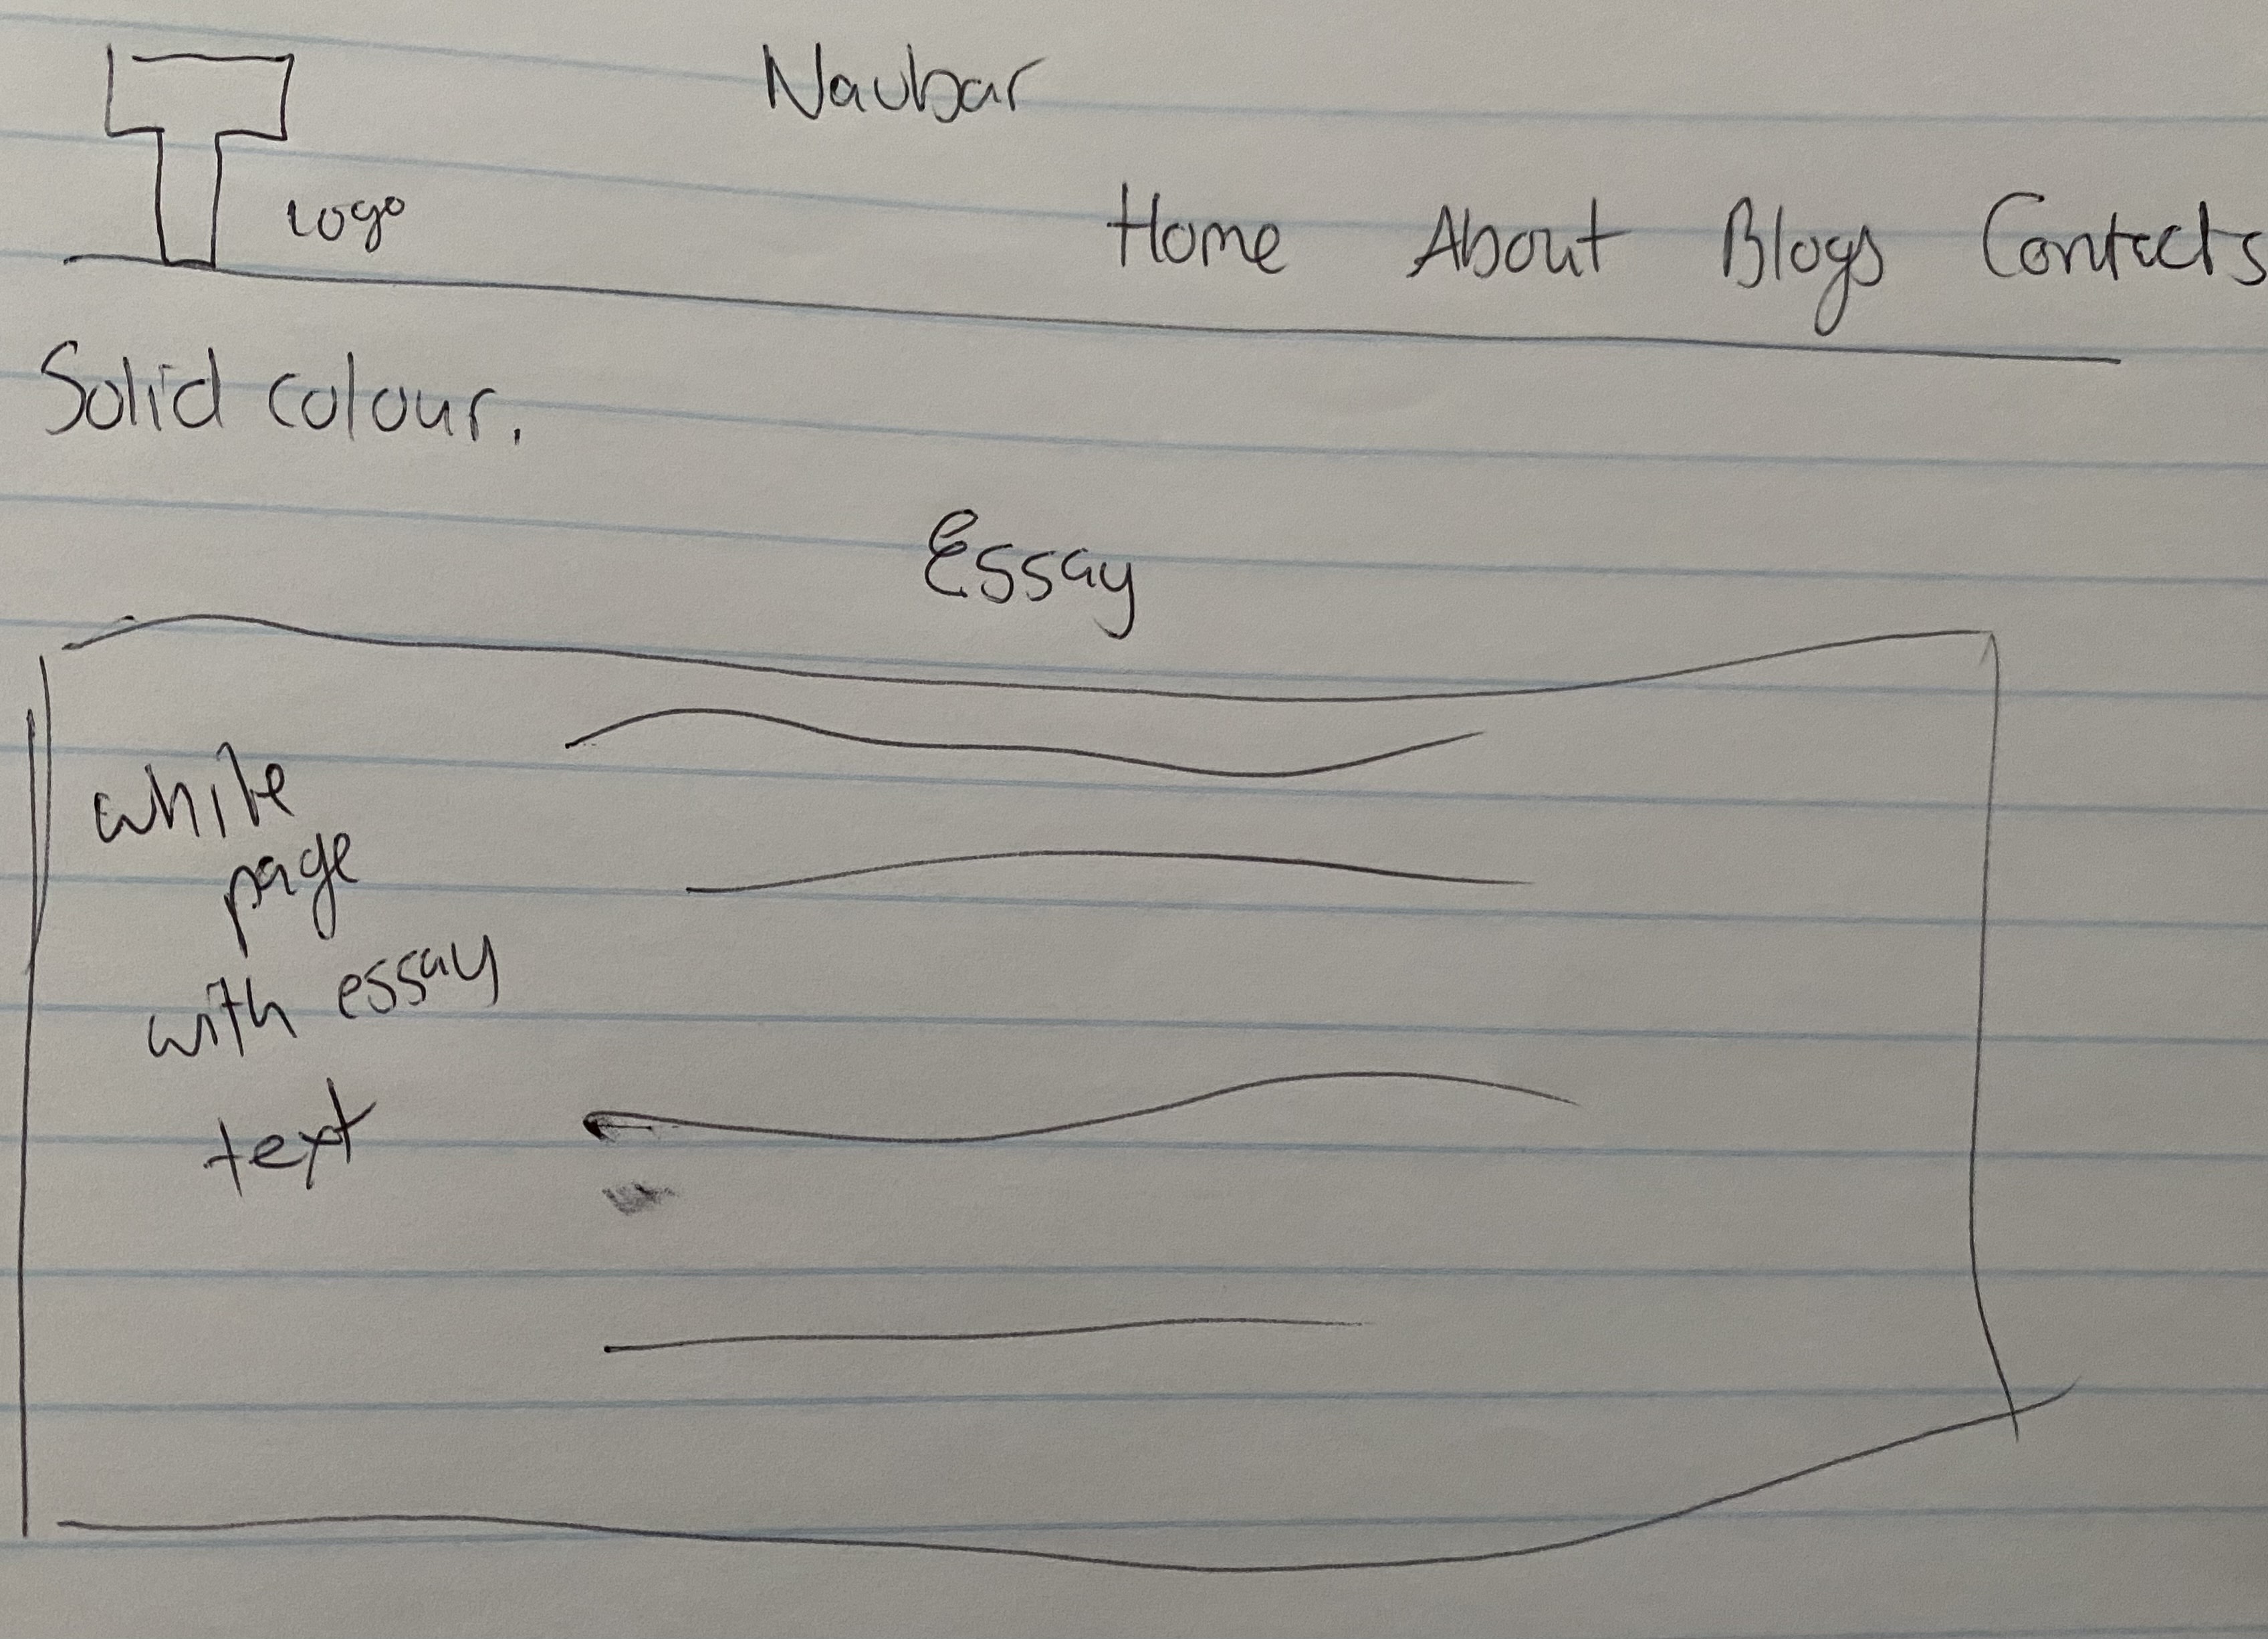 Navbar
logo
Home About Blogs Contacts
Solid colour.
Essay
white
page
with essay
text